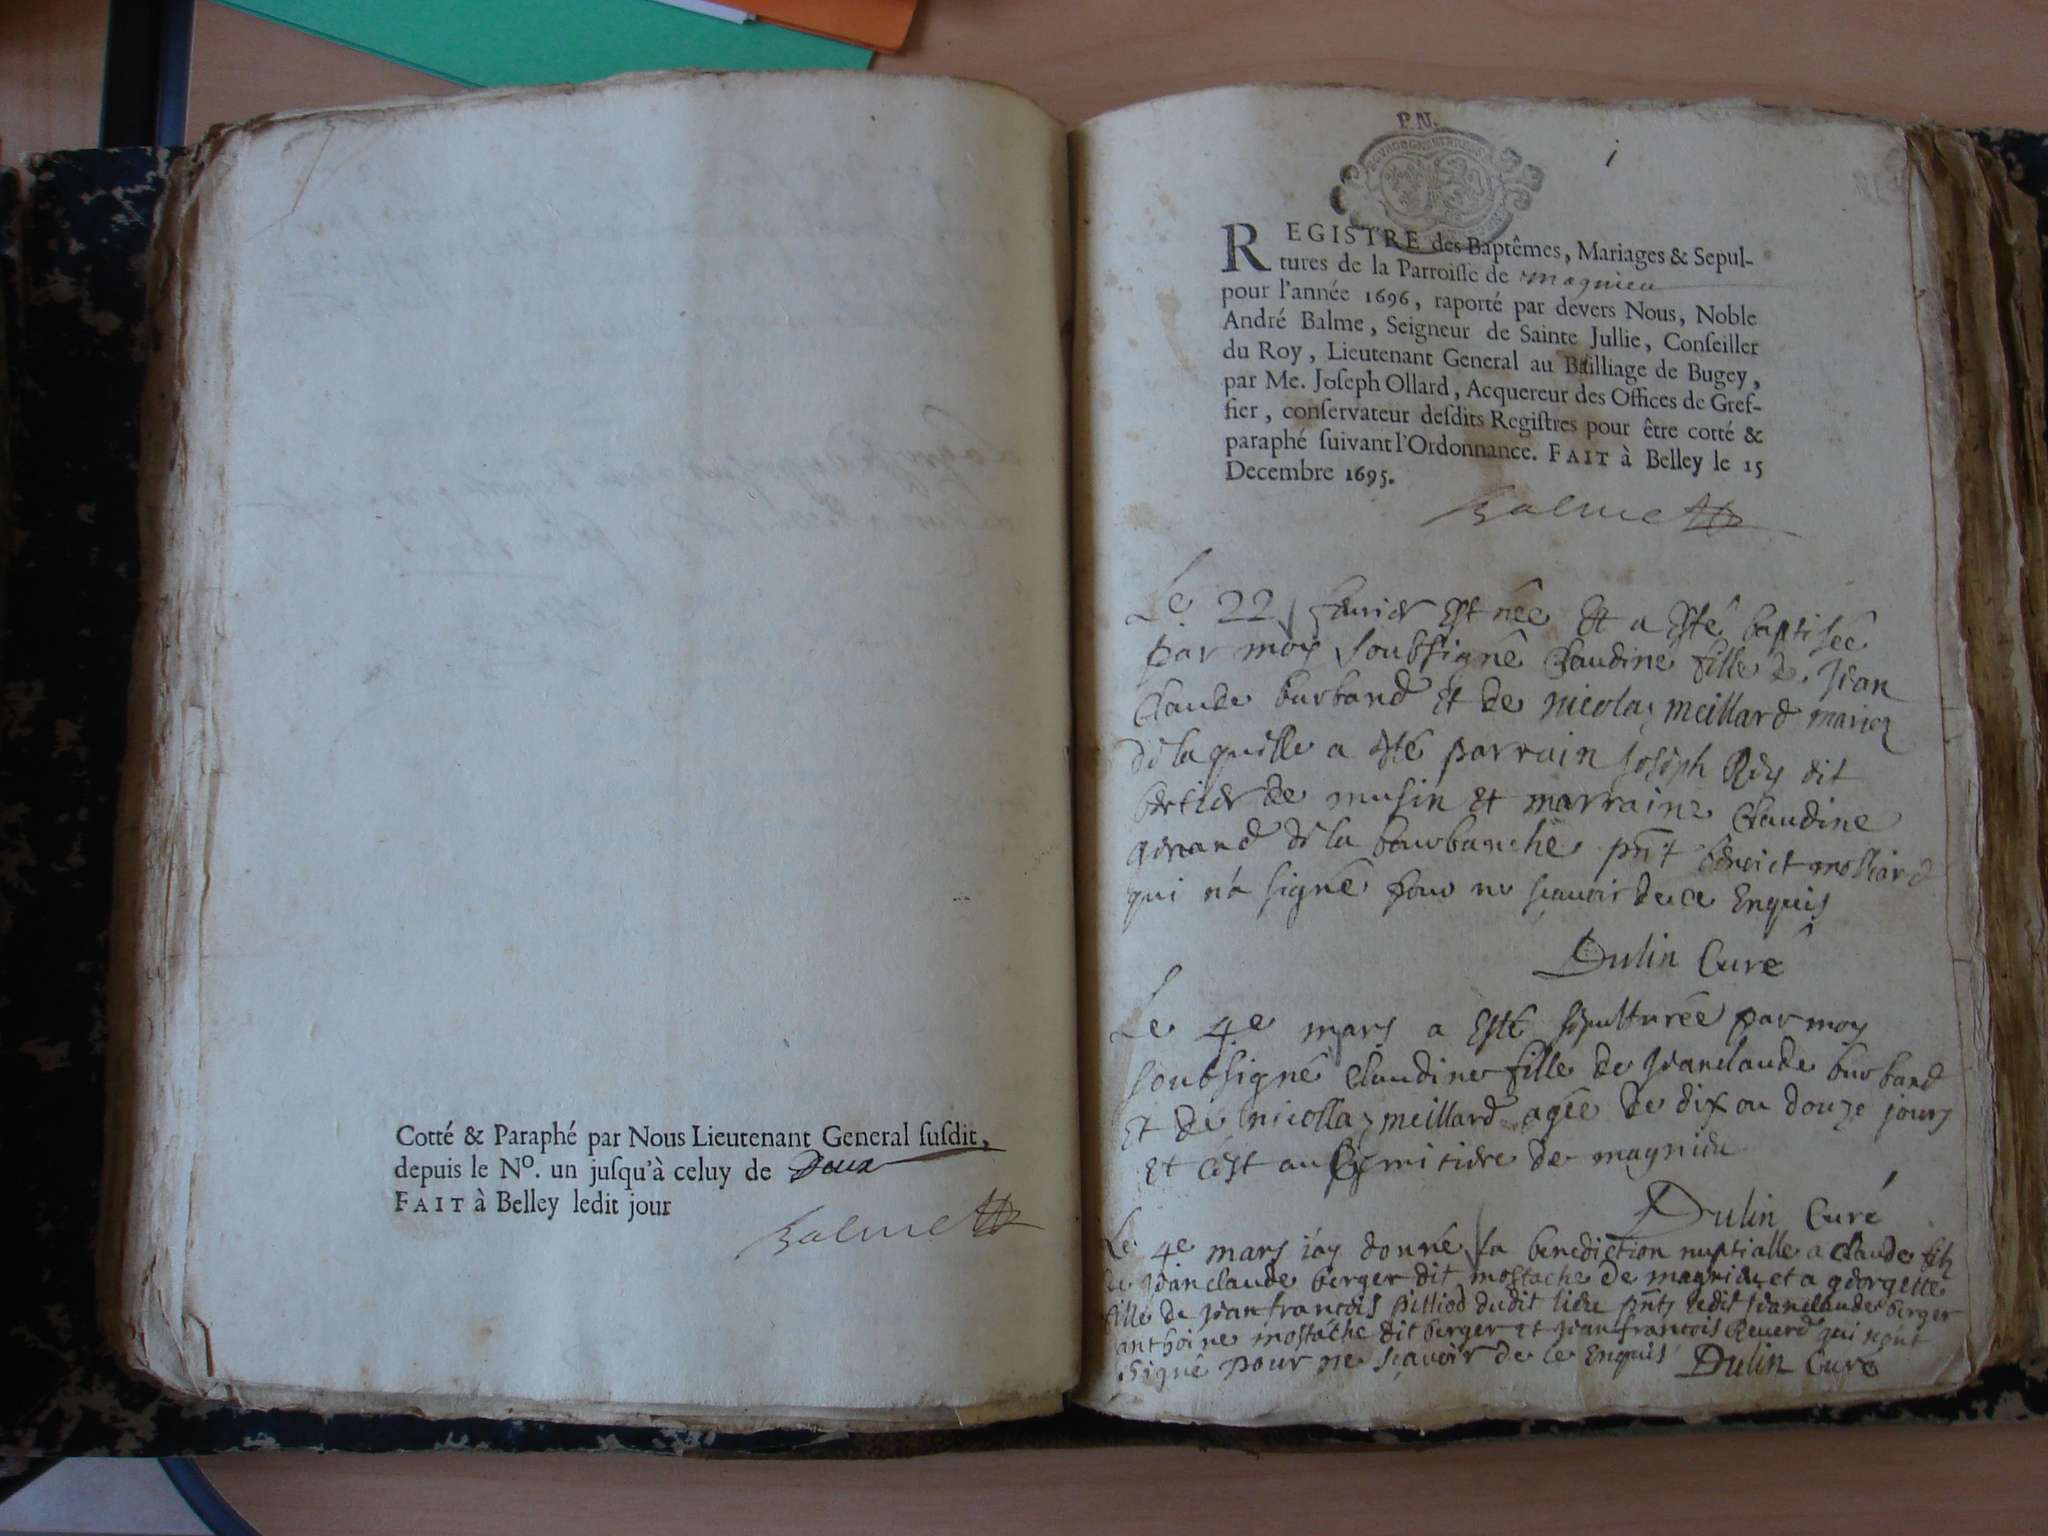 Cotté & Paraphé par Nous Lieutenant General ſuſdit,
depuis le Nº. un juſqu'à celuy de Deux
FAIT à Belley ledit jour
Balme
P.N.
i
REGISTRE des Baptêmes, Mariages & Sepul-
tures de la Parroiſſe de magnieu
pour l'année 1696, raporté par devers Nous, Noble
André Balme, Seigneur de Sainte Jullie, Conſeiller
du Roy, Lieutenant General au Bailliage de Bugey,
par Me. Joſeph Ollard, Acquereur des Offices de Gref-
fier, conſervateur deſdits Regiſtres pour être cotté &
paraphé ſuivant l'Ordonnance. FAIT à Belley le 15
Decembre 1695.
Balme
Le 22 feurier Est née Et a Esté baptisée
par moy soubsigné Claudine fille de Jean
Claude burband Et de nicolaz meillard mariez
de laquelle a esté parrain Joseph Rey dit
bertier de musin Et marraine Claudine
de la bourbanche pñt benoict molliard
qui n'a signé pour ne scauoir de ce Enquis
Dulin Curé
Le 4e mars a Esté sepulturée par moy
soubsigné Claudine fille de Jeanclaude burband
Et de nicollaz meillard agée de dix ou douze jours
Et c'est au Cemitiere de magnieu
Dulin Curé
Le 4e mars i'ay donné la benediction nuptialle a Claude filz
de Jeanclaude berger dit mostache de magnieu et a georgette
fille de Jeanfrancois pilliod dudit lieu pñts ledit Jeanclaude berger
anthoine mostache dit berger et Jeanfrancois Reuerd qui n'ont
signé pour ne sçavoir de ce Enquis Dulin Curé